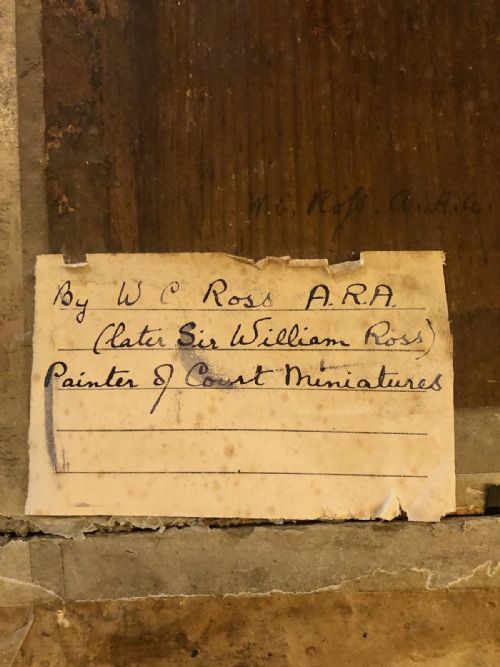 W. C. Ross. A.R.A.
By W C Ross A.R.A.
(later Sir William Ross)
Painter of Court Miniatures